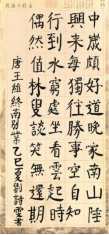 中歲頗好道晚家南山陲
興來每獨往勝事空自知
行到水窮處坐看雲起時
偶然值林叟談笑無還期
唐王維終南別業乙巳夏劉詩雲書